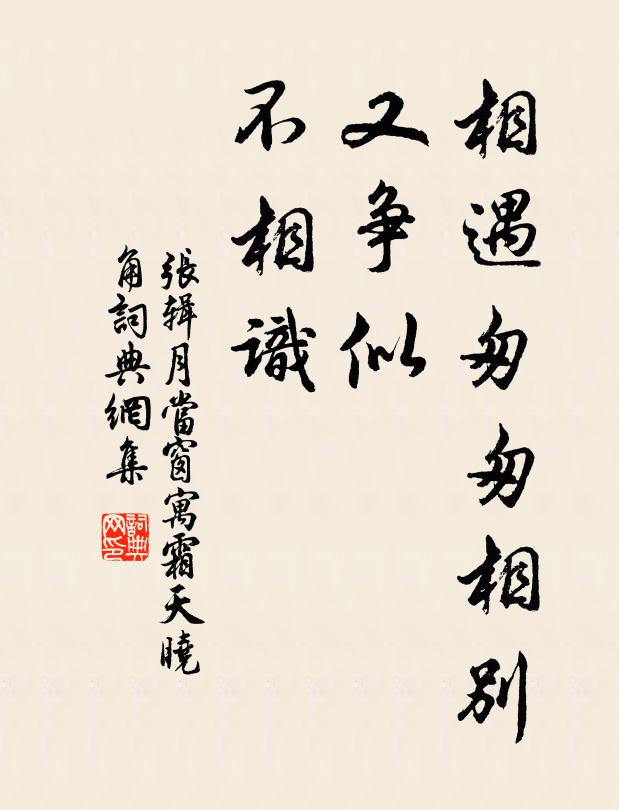 相遇匆匆相別
又爭似
不相識
張辑月當窗寓霜天曉
角詞典網集
詞典
网印